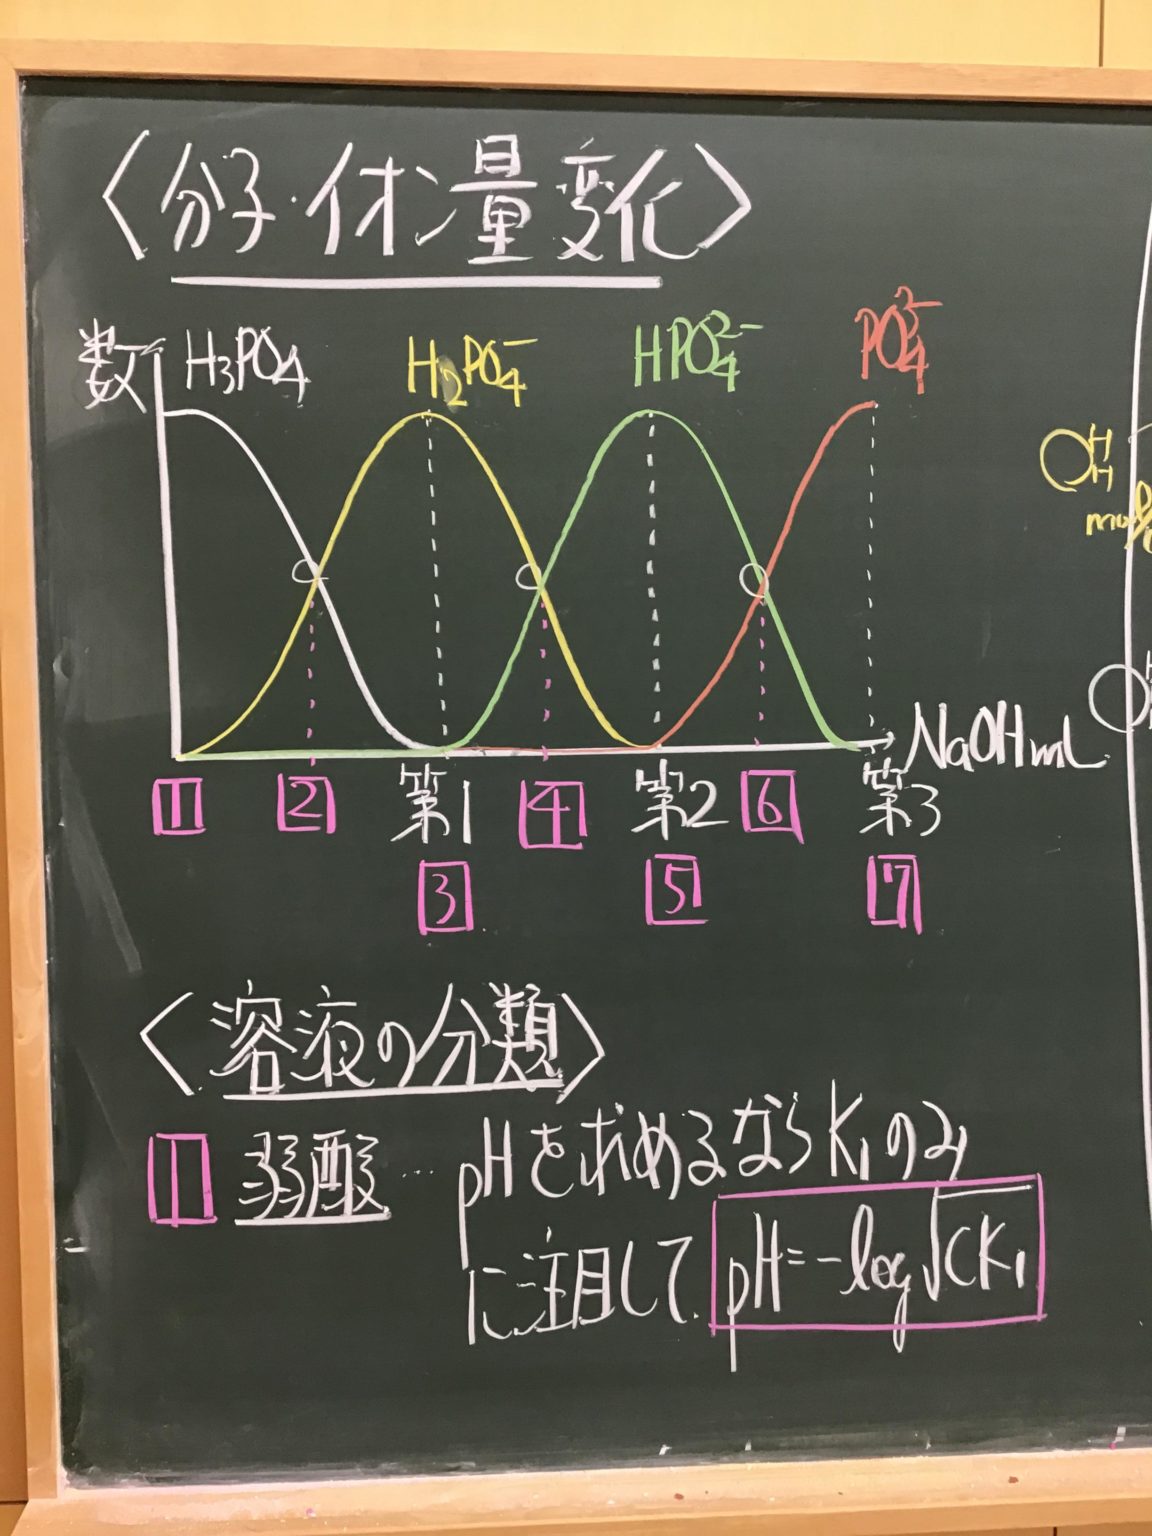 〈分子・イオン量変化〉
数 H₃PO₄ H₂PO₄⁻ HPO₄²⁻ PO₄²⁻
OH
H
mol
NaOH mL
1 2 第1 4 第2 6 第3
3 5 7
〈溶液の分類〉
1 弱酸 … pHを求めるならK₁のみ
に注目して pH=-log√CK₁